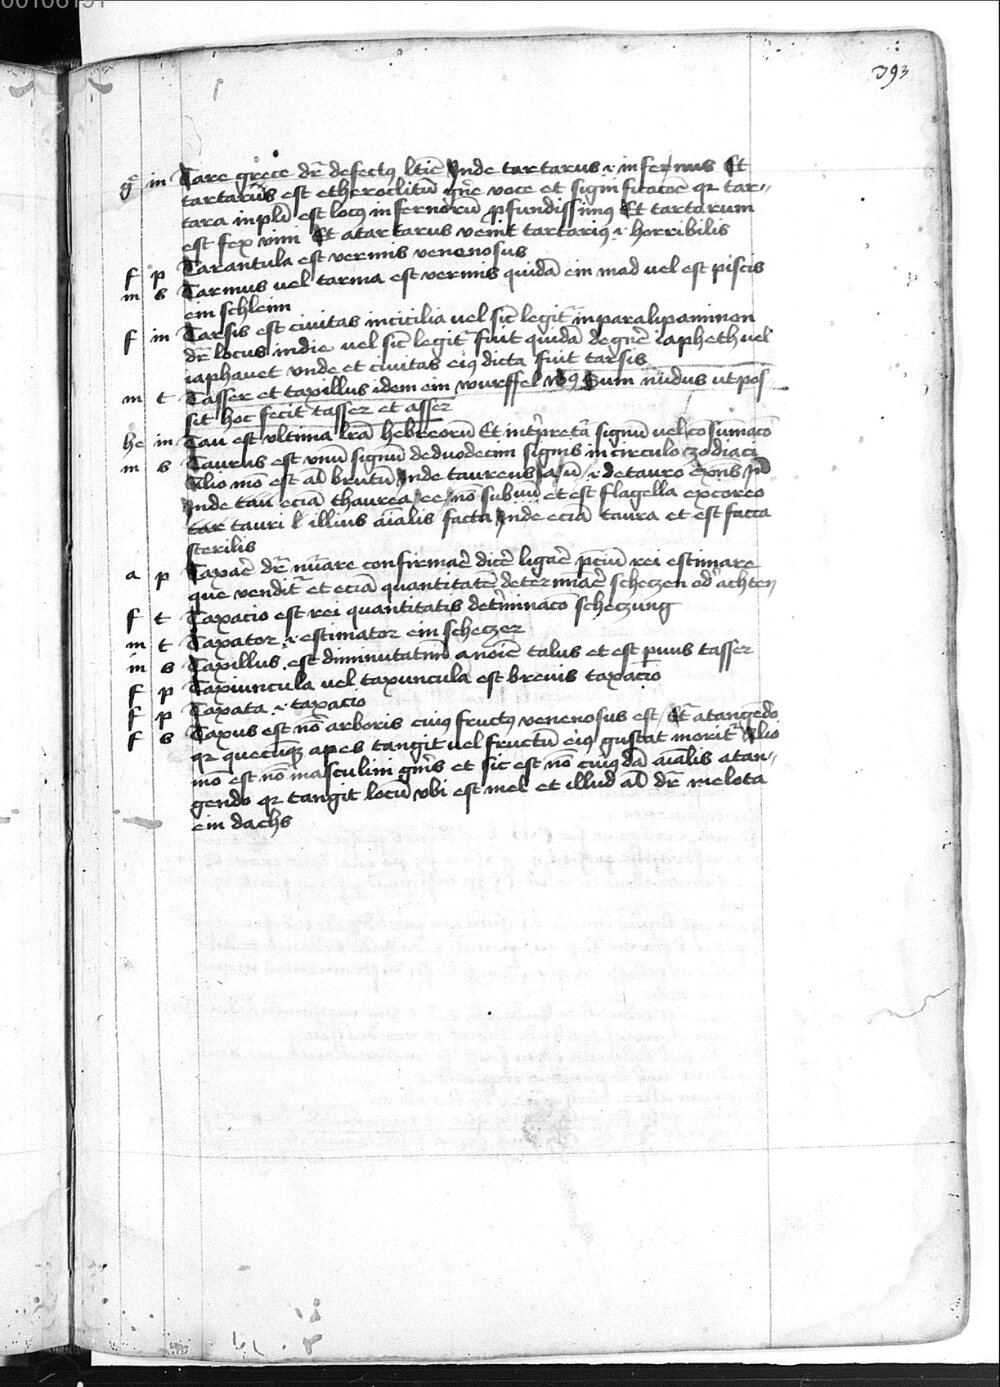 393
ge in Tare grece dr̄ defectus ltīe Inde tartarus .i. infernus Et
tartarus est etheroclitū gn̄e voce et significatōe qr tar-
tara in plā est locus infernorū profundissimus Et tartarum
est fex vini Et a tartarus venit tartarius .i. horribilis
f p Tarantula est vermis venenosus
m s Tarmus vel tarma est vermis quidā ein mad vel est piscis
ein schleim
f in Tarsis est civitas in cicilia vel sic̄ legit̄ in paralipominon
dr̄ locus indie vel sic̄ legit̄ fuit quidā de gn̄e iapheth vel
iaphanet vnde et civitas eius dicta fuit tarsis
m t Tasser et taxillus idem ein wurffel Sum nūdus ut pos
sit hoc fecit tasser et asser
he in Tau est vltima lrā hebreorū Et int̄pretat̄ signū vel cōsumacō
m s Taurus est vnū signū de duodecim signis in circulo zodiaci
Alio mō est aīal brutū Inde taureus a ū .i. de tauro exn̄s
Inde tau eciā thaurea ee nō subm̄ et est flagella ex coreo
tar tauri l illius aīalis facta Inde eciā taura et est facta
sterilis
a p Taxare dr̄ nūare confirmare dic̄e ligare p̄ciū rei estimare
que vendit̄ et eciā quantitatē determiare scheczen oder achten
f t Taxacio est rei quantitatis det̄minacō scheczung
m t Taxator .i. estimator ein scheczer
m s Taxillus est diminutatm̄ a noīe talus et est puus tasser
f p Taxiuncula vel taxuncula est brevis taxacio
f p Taxata .i. taxacio
f s Taxus est nō arboris cuius fructus venenosus est Et a tangendo
qr quecūq apes tangit vel fructū eius gustat morit̄ Alio
mō est nō masculini gn̄is et sic est nō cuiusdā aīalis a tan-
gendo qr tangit locū vbi est mel et illud aīal dr̄ melota
ein dachs